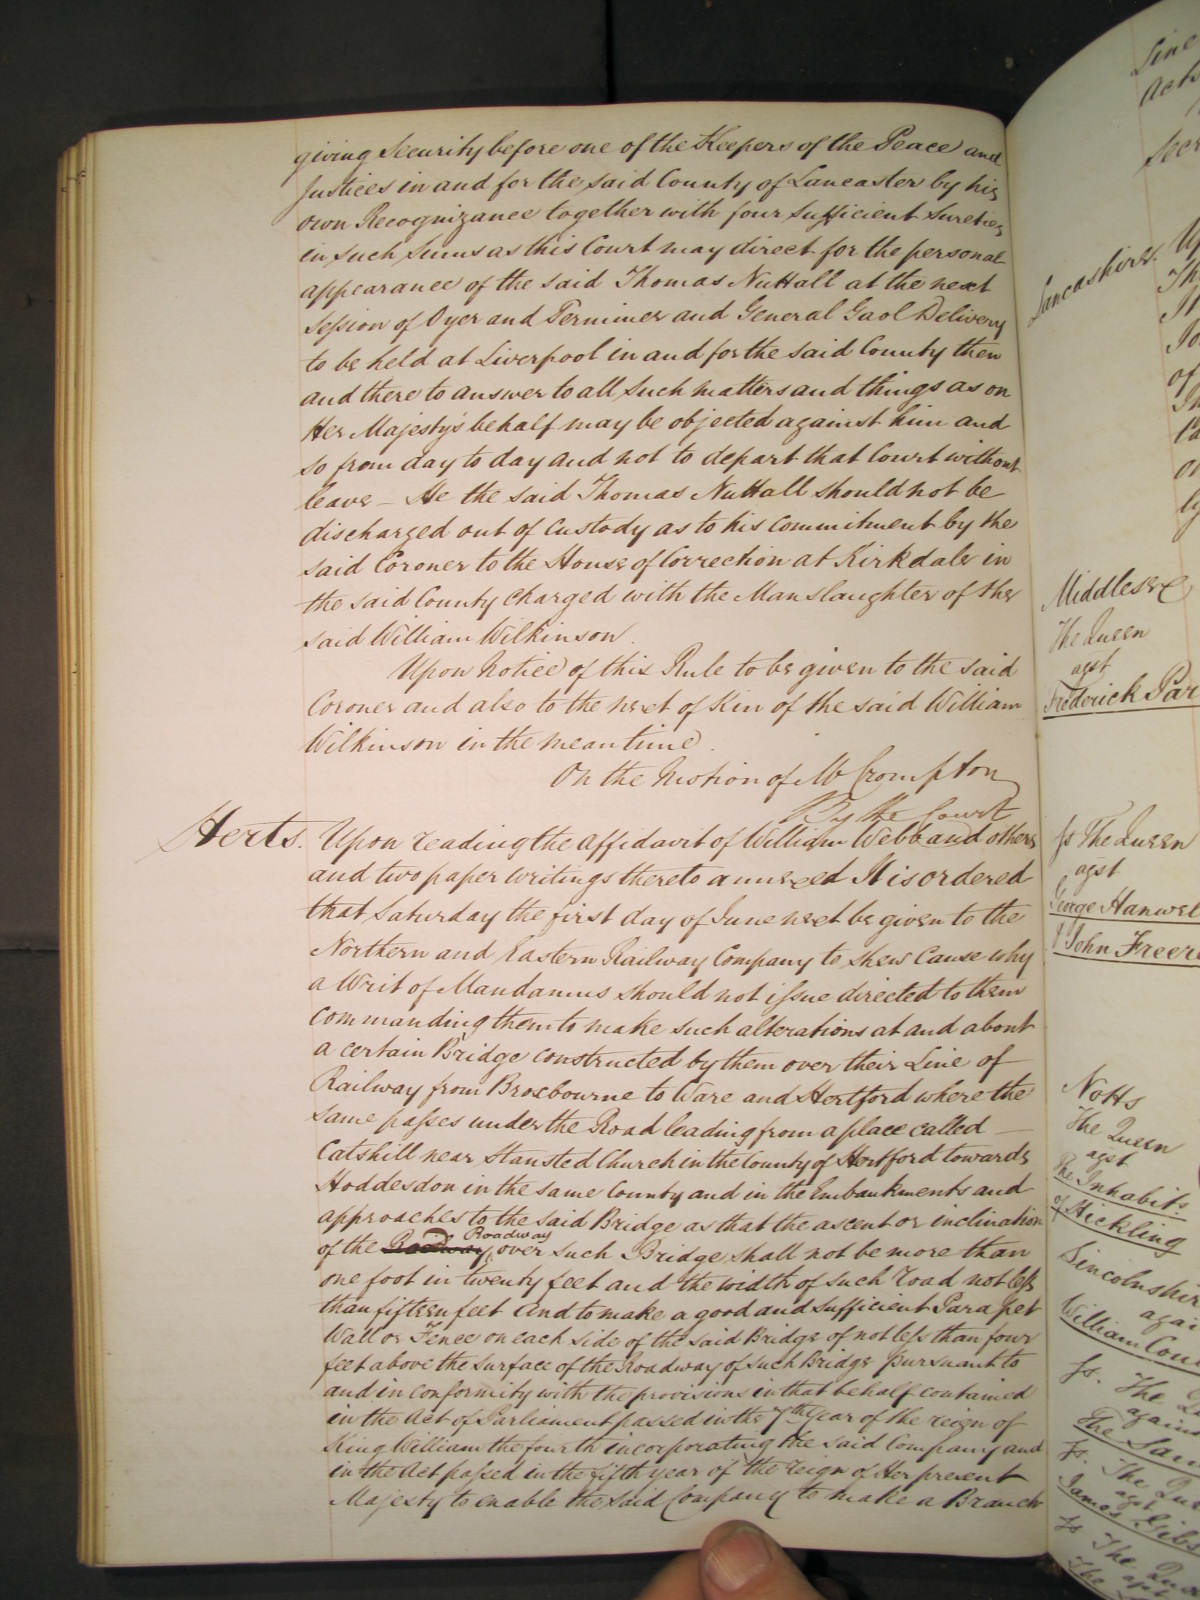 giving Security before one of the Keepers of the Peace and
Justices in and for the said County of Lancaster by his
own Recognizance together with four sufficient Sureties
in such Sums as this Court may direct for the personal
appearance of the said Thomas Nuttall at the next
Session of Oyer and Terminer and General Gaol Delivery
to be held at Liverpool in and for the said County then
and there to answer to all such matters and things as on
Her Majesty's behalf may be objected against him and
so from day to day and not to depart that Court without
leave – He the said Thomas Nuttall should not be
discharged out of custody as to his commitment by the
said Coroner to the House of Correction at Kirkdale in
the said County charged with the Manslaughter of the
said William Wilkinson.
Upon Notice of this Rule to be given to the said
Coroner and also to the next of Kin of the said William
Wilkinson in the mean time.
On the Motion of Mr Crompton
By the Court
Herts. Upon reading the affidavit of William Webb and others
and two paper writings thereto annexed It is ordered
that Saturday the first day of June next be given to the
Northern and Eastern Railway Company to shew Cause why
a Writ of Mandamus should not issue directed to them
commanding them to make such alterations at and about
a certain Bridge constructed by them over their Line of
Railway from Broxbourne to Ware and Hertford where the
same passes under the Road leading from a place called –
Catshill near Stansted Church in the County of Hertford towards
Hoddesdon in the same County and in the Embankments and
approaches to the said Bridge as that the ascent or inclination
of the Roadway Roadway over such Bridge shall not be more than
one foot in twenty feet and the width of such Road not less
than fifteen feet And to make a good and sufficient Parapet
Wall or Fence on each side of the said Bridge of not less than four
feet above the surface of the Roadway of such Bridge pursuant to
and in conformity with the provisions in that behalf contained
in the Act of Parliament passed in the 7th Year of the reign of
King William the fourth incorporating the said Company and
in the Act passed in the fifth year of the reign of Her present
Majesty to enable the said Company to make a Branch
Line
Lancashire.
Middlesex
The Queen
agst
Frederick Par
The Queen
agst
George Hanwel
John Freer
Notts
The Queen
agst
The Inhabits
of Hickling
Lincolnshir
agai
William Cou
The
against
The
The
agst
James Gibs
The
agst
The